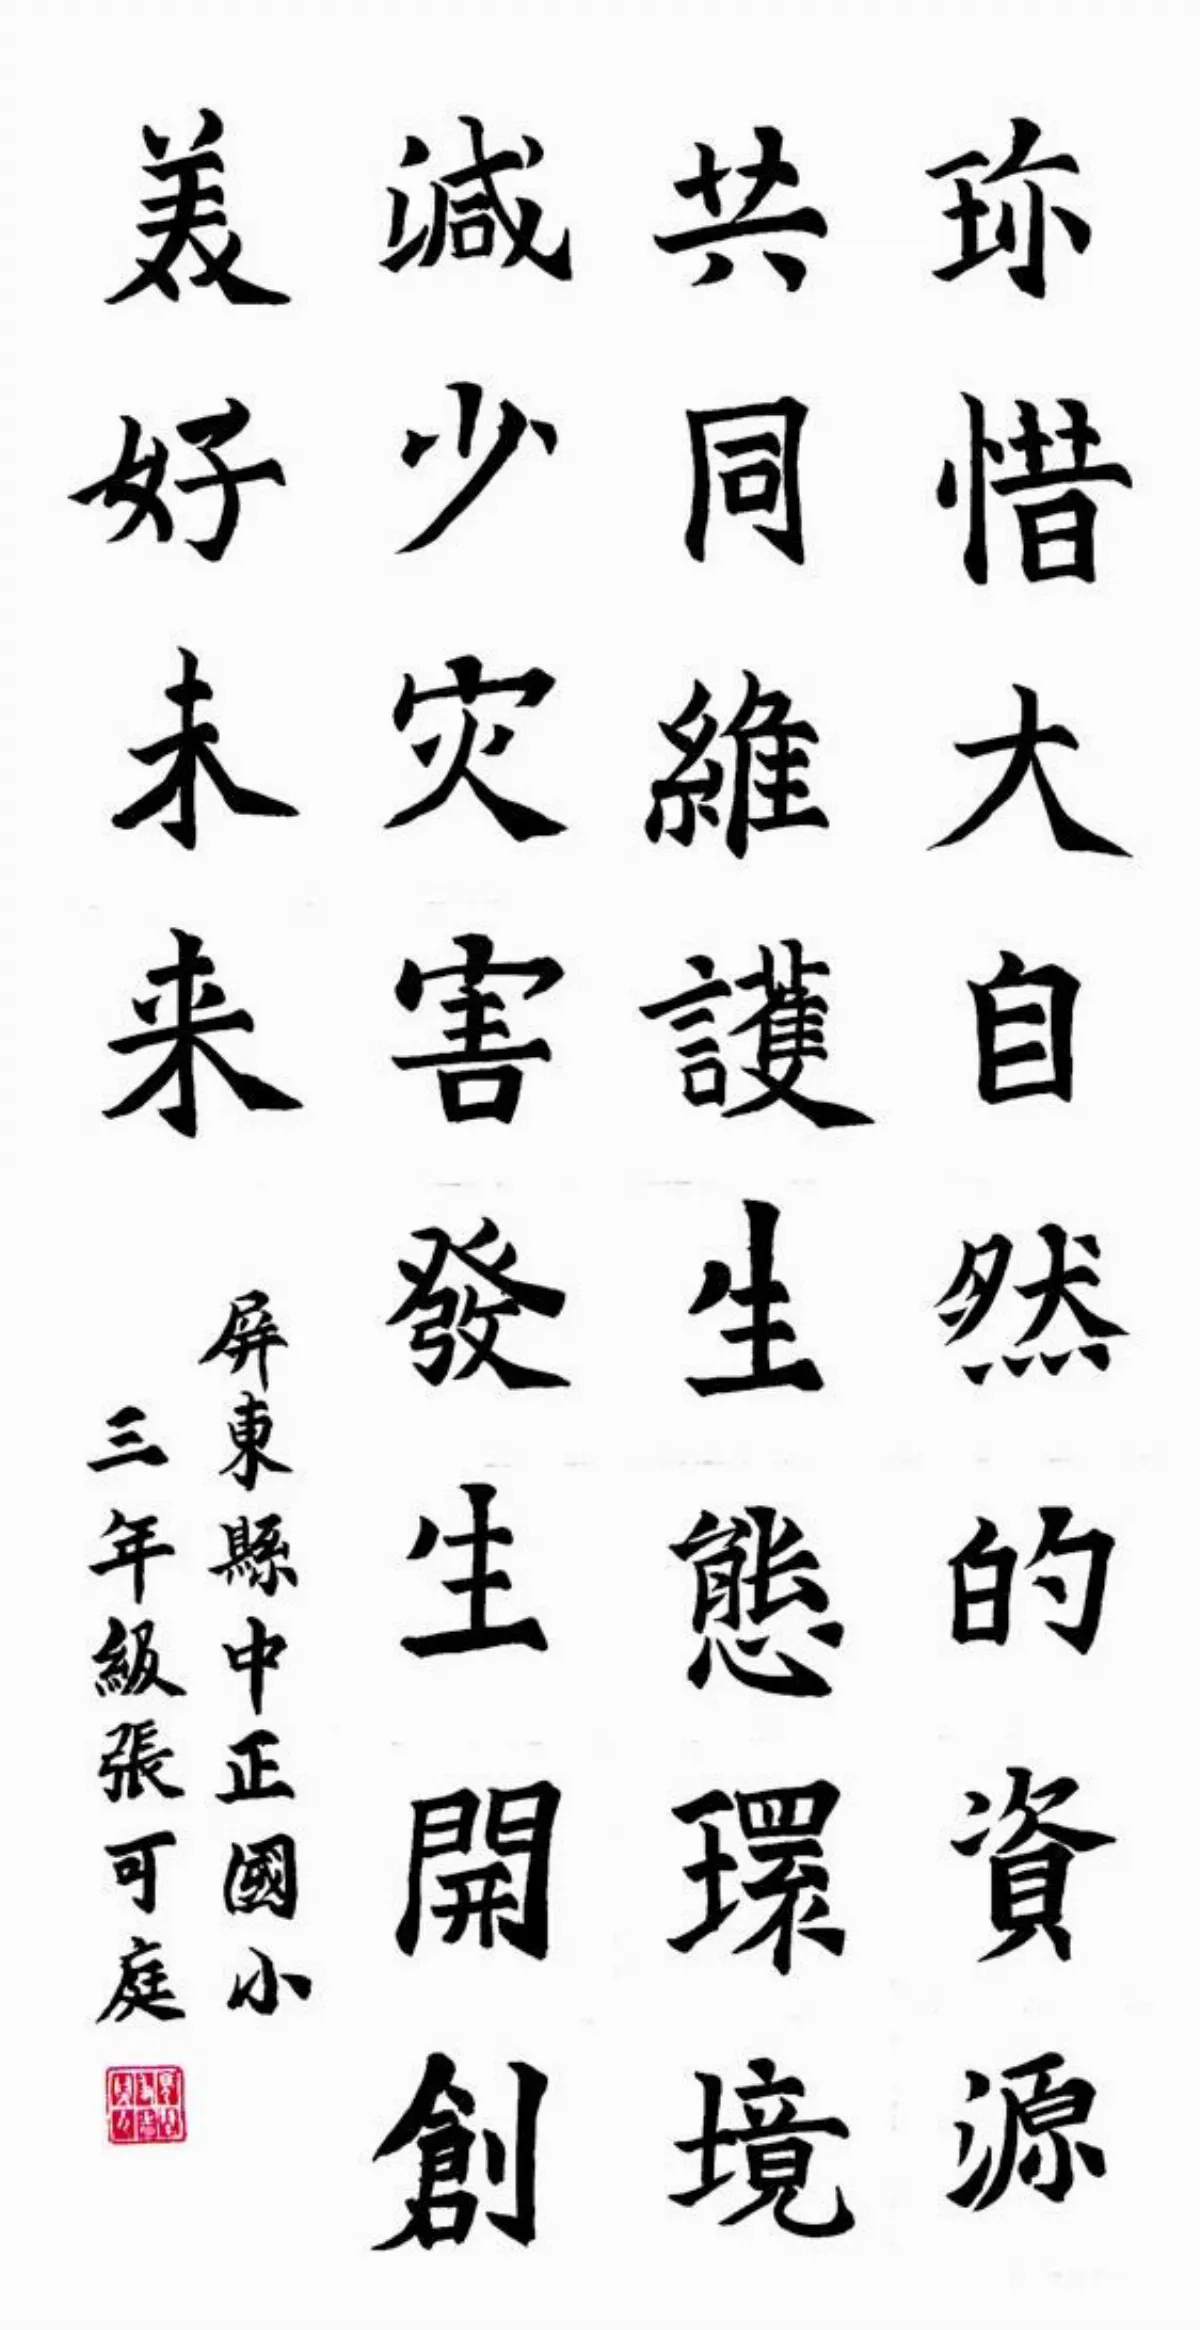 珎惜大自然的資源
共同維護生態環境
減少災害發生開創
美好未来
屏東縣中正國小
三年級張可庭